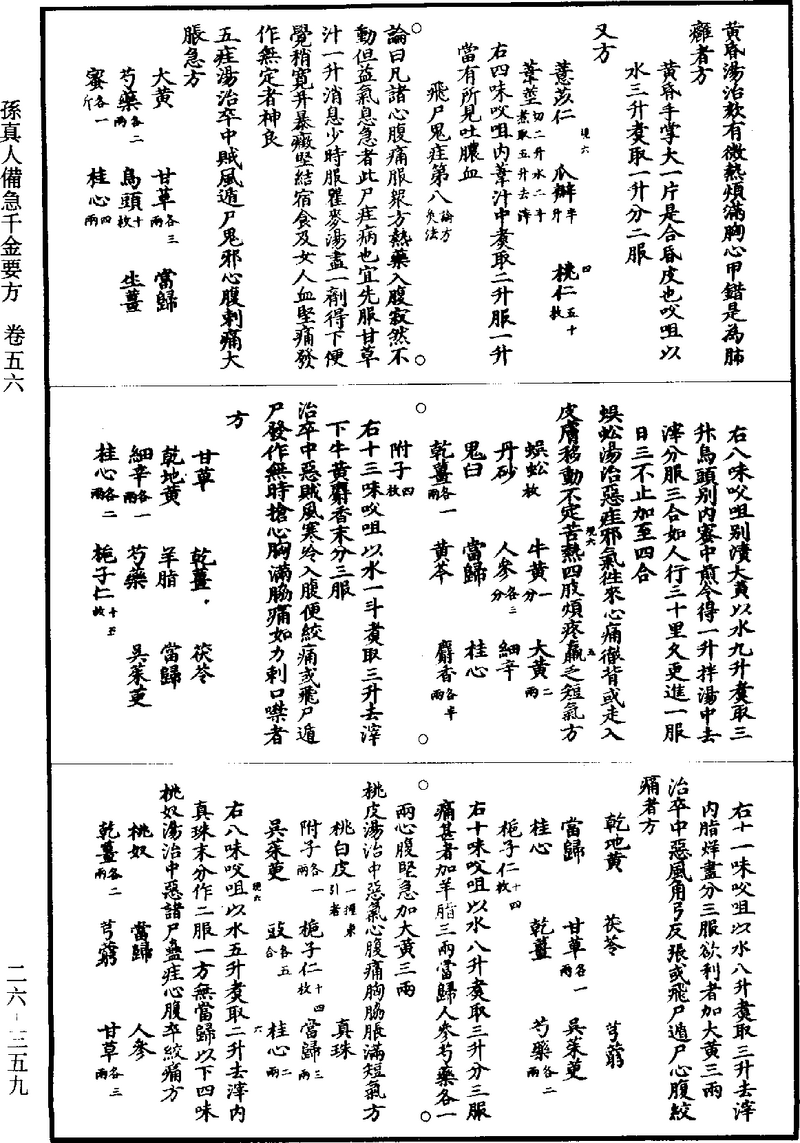 黃昏湯治欬有微熱煩滿胸心甲錯是為肺
癰者方
黃昏手掌大一片是合昏皮也㕮咀以
水三升煑取一升分二服
又方
薏苡仁 瓜瓣半升 桃仁五十枚
葦莖切二升水二斗煑取五升去滓
右四味㕮咀內葦汁中煑取二升服一升
當有所見吐膿血
飛尸鬼疰第八論方灸法
論曰凡諸心腹痛服眾方熱藥入腹寂然不
動但益氣息急者此尸疰病也宜先服甘草
汁一升消息少時服瞿麥湯盡一劑得下便
覺稍寬并暴癥堅結宿食及女人血堅痛發
作無定者神良
五疰湯治卒中賊風遁尸鬼邪心腹刺痛大
脹急方
大黃 甘草各三兩 當歸
芍藥各二兩 烏頭十枚 生薑
蜜各一斤 桂心四兩
右八味㕮咀別漬大黃以水九升煑取三
升烏頭別內蜜中煎令得一升拌湯中去
滓分服三合如人行三十里久更進一服
日三不止加至四合
蜈蚣湯治惡疰邪氣往來心痛徹背或走入
皮膚移動不定苦熱四肢煩疼羸乏短氣方
蜈蚣枚 牛黃一分 大黃二兩
丹砂 人參各三分 細辛
鬼臼 當歸 桂心
乾薑各一兩 黃芩 麝香各半兩
附子四枚
右十三味㕮咀以水一斗煑取三升去滓
下牛黃麝香末分三服
治卒中惡賊風寒冷入腹便絞痛或飛尸遁
尸發作無時搶心胸滿脇痛如刀刺口噤者
方
甘草 乾薑 茯苓
乾地黃 羊脂 當歸
細辛各一兩 芍藥 吳茱萸
桂心各二兩 梔子仁十五枚
右十一味㕮咀以水八升煑取三升去滓
內脂烊盡分三服欲利者加大黃三兩
治卒中惡風角弓反張或飛尸遁尸心腹絞
痛者方
乾地黃 茯苓 芎藭
當歸 甘草各一兩 吳茱萸
桂心 乾薑 芍藥各二兩
梔子仁十四枚
右十味㕮咀以水八升煑取三升分三服
痛甚者加羊脂三兩當歸人參芍藥各一
兩心腹堅急加大黃三兩
桃皮湯治中惡氣心腹痛胸脇脹滿短氣方
桃白皮一握東引者 真珠
附子各一兩 梔子仁十四枚 當歸三兩
吳茱萸 豉各五合 桂心二兩
右八味㕮咀以水五升煑取二升去滓內
真珠末分作二服一方無當歸以下四味
桃奴湯治中惡諸尸蠱疰心腹卒絞痛方
桃奴 當歸 人參
乾薑各二兩 芎藭 甘草各三兩
孫真人備急千金要方 卷五六
二六-三五九